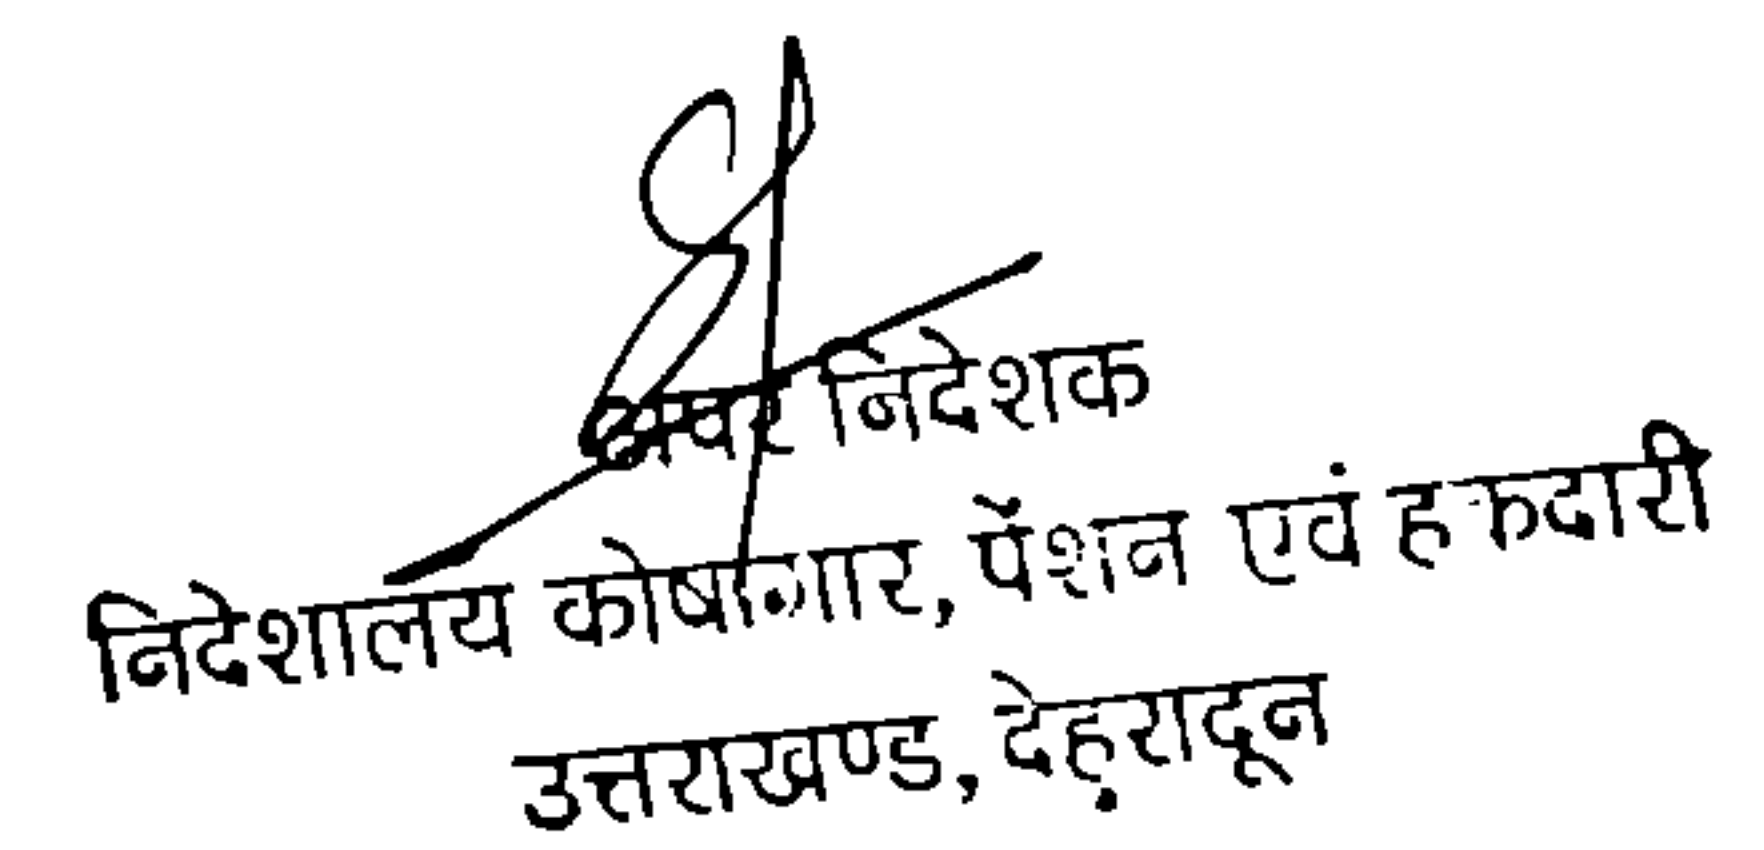 निदेशक
निदेशालय कोषागार, पेंशन एवं हकदारी
उत्तराखण्ड, देहरादून